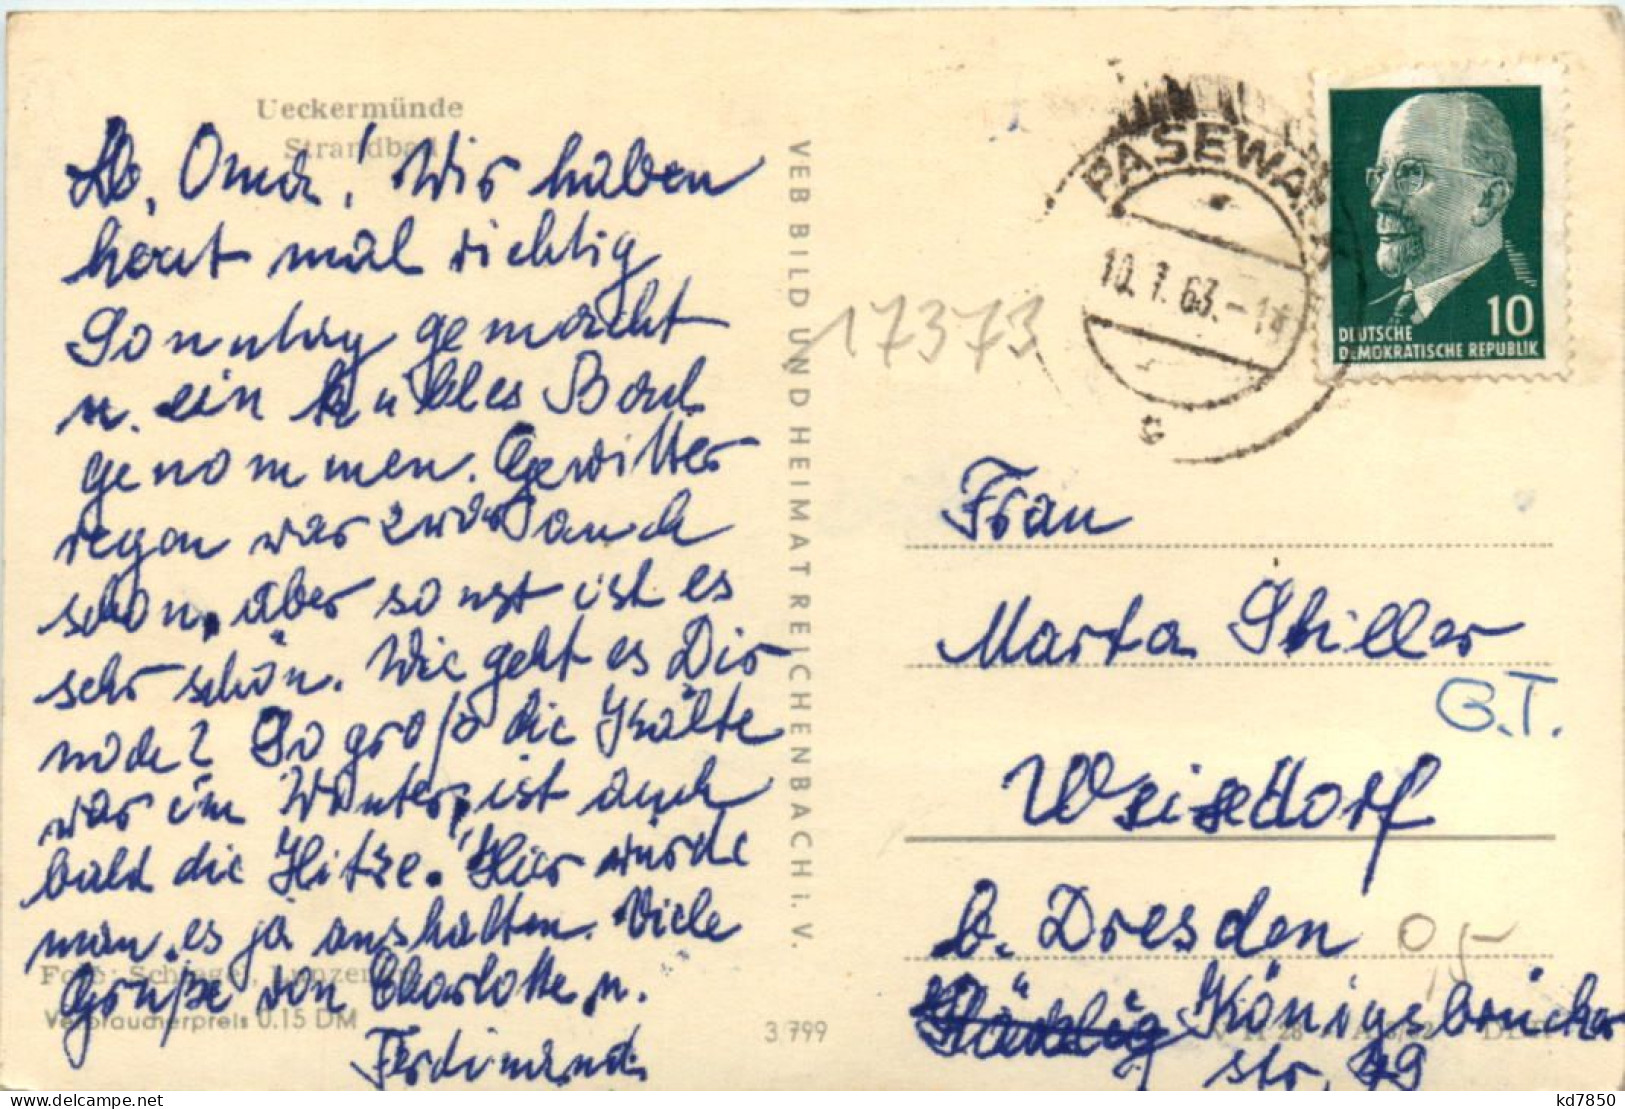 Ueckermünde
Strandbad
Lb. Oma! Wir haben
heut mal richtig
Sonntag gemacht
u. ein kühles Bad
genommen. Gewitter
regen war zwar auch
schon, aber sonst ist es
sehr schön. Wie geht es Dir
node? So groß die Kälte
war im Winter, ist auch
bald die Hitze. Hier würde
man es ja aushalten. Viele
Grüße von Charlotte u.
Ferdinand.
Foto:
Verbraucherpreis 0.15 DM
VEB BILD UND HEIMAT REICHENBACH i. V.
3 799
17373
PASEWALK
10. 7. 63. - 14
c
10
DEUTSCHE
DEMOKRATISCHE REPUBLIK
Frau
Marta Stiller
G.T.
Weixdorf
b. Dresden
0,5
Königsbrücker
str. 49
kd7850